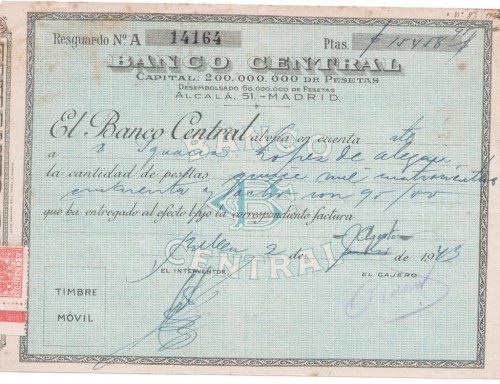 Resguardo Nº A 14164 Ptas. # 15458 90 #
BANCO CENTRAL
CAPITAL: 200.000.000 DE PESETAS
DESEMBOLSADO 60.000.000 DE PESETAS
ALCALÁ, 51.-MADRID
El Banco Central abona en cuenta cte
a D Ignacio Lopez de
la cantidad de pesetas quince mil cuatrocientas
cincuenta y ocho con 90/00
que ha entregado al efecto bajo la correspondiente factura
2 de Agosto de 1943
EL INTERVENTOR EL CAJERO
TIMBRE
MÓVIL
BANCO
CENTRAL